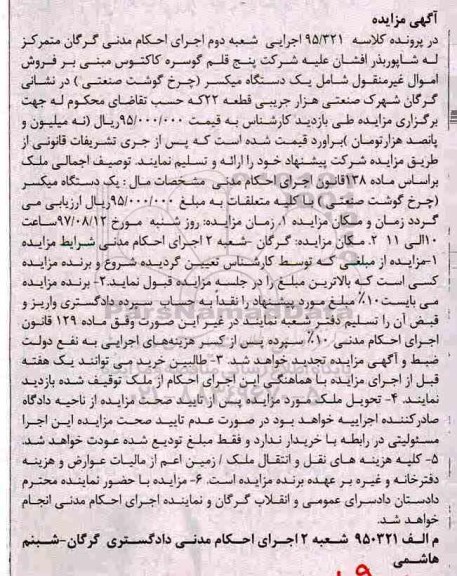 آگهی مزایده
در پرونده کلاسه ۹۵/۳۲۱ اجرایی شعبه دوم اجرای احکام مدنی گرگان متمرکز
له شاپوربذر افشان علیه شرکت پنج قلم گوسره کاکتوس مبنی بر فروش
اموال غیرمنقول شامل یک دستگاه میکسر (چرخ گوشت صنعتی ) در نشانی
گرگان شهرک صنعتی هزار جریبی قطعه ۲۲که حسب تقاضای محکوم له جهت
برگزاری مزایده طی بازدید کارشناس به قیمت ۹۵/۰۰۰/۰۰۰ریال (نه میلیون و
پانصد هزارتومان )براورد قیمت شده است که پس از جری تشریفات قانونی از
طریق مزایده شرکت پیشنهاد خود را ارائه و تسلیم نمایند. توصیف اجمالی ملک
براساس ماده ۱۳۸قانون اجرای احکام مدنی مشخصات مال : یک دستگاه میکسر
(چرخ گوشت صنعتی ) با کلیه متعلقات به مبلغ ۹۵/۰۰۰/۰۰۰ریال ارزیابی می
گردد زمان و مکان مزایده ۱. زمان مزایده: روز شنبه مورخ ۹۷/۰۸/۱۲ساعت
۱۰الی ۱۱ ۲. مکان مزایده: گرگان –شعبه ۲ اجرای احکام مدنی شرایط مزایده
۱-مزایده از مبلغی که توسط کارشناس تعیین گردیده شروع و برنده مزایده
کسی است که بالاترین مبلغ را در جلسه مزایده قبول نماید.۲- برنده مزایده
می بایست۱۰٪ مبلغ مورد پیشنهاد را نقداً به حساب سپرده دادگستری واریز و
قبض آن را تسلیم دفتر شعبه نمایند در غیر این صورت وفق ماده ۱۲۹ قانون
اجرای احکام مدنی ۱۰٪ سپرده پس از کسر هزینه‌های اجرایی به نفع دولت
ضبط و آگهی مزایده تجدید خواهد شد. ۳- طالبین خرید می توانند یک هفته
قبل از اجرای مزایده با هماهنگی این اجرای احکام از ملک توقیف شده بازدید
نمایند. ۴- تحویل ملک مورد مزایده پس از تایید صحت مزایده از ناحیه دادگاه
صادرکننده اجراییه خواهد بود در صورت عدم تایید صحت مزایده این اجرا
مسئولیتی در رابطه با خریدار ندارد و فقط مبلغ تودیع شده عودت خواهد شد.
۵- کلیه هزینه های نقل و انتقال ملک / زمین اعم از مالیات عوارض و هزینه
دفترخانه و غیره بر عهده برنده مزایده است. ۶- مزایده با حضور نماینده محترم
دادستان دادسرای عمومی و انقلاب گرگان و نماینده اجرای احکام مدنی انجام
خواهد شد.
م الف ۹۵۰۳۲۱ شعبه ۲ اجرای احکام مدنی دادگستری گرگان-شبنم
هاشمی